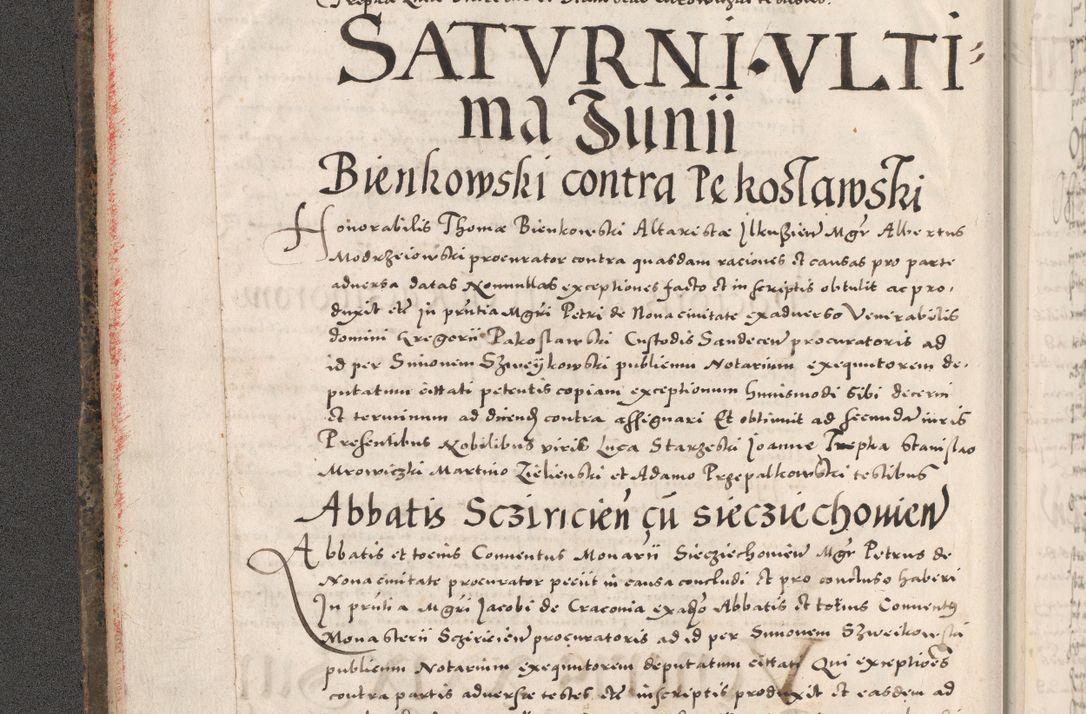 SATVRNI · VLTI
ma Junii
Bienkowski contra Pękoslawski
Honorabilis Thomæ Bienkowski Altaristæ Jlkusien Mgr Albertus
Modrzeiowski procurator contra quasdam raciones et causas pro parte
adversa datas Nonnullas exceptiones facto et in scriptis obtulit ac pro-
duxit etc in pntia Mgri Petri de Nova civitate ex adverso Venerabilis
domini Gregorii Pakoslawski Custodis Sandecen procuratoris ad
id per Simonem Szweykowski publicum Notarium exequutorem de-
putatum cittati petentis copiam exceptionum huiusmodi sibi decerni
et terminum ad dicend contra assignari Et obtinuit ad secunda iuris
Presentibus Nobilibus viris Luca Starzeski Joanne Trepka Stanislao
Mrowiczki Martino Zielienski et Adamo Przepalkowski testibus
Abbatis Scziricien cu Siecziechovien
Abbatis et tocius Conventus Monarii Siecziechovien Mgr Petrus de
Nova civitate procurator peciit in causa concludi et pro concluso haberi
In pntia Mgri Jacobi de Cracovia ex adso Abbatis et totius Conventus
Monasterii Scziricien procuratoris ad id per Simonem Szweikowski
publicum Notarium exequutorem deputatum cittati Qui exceptiões
contra partis adversæ testes etc in scriptis produxit et easdem ad